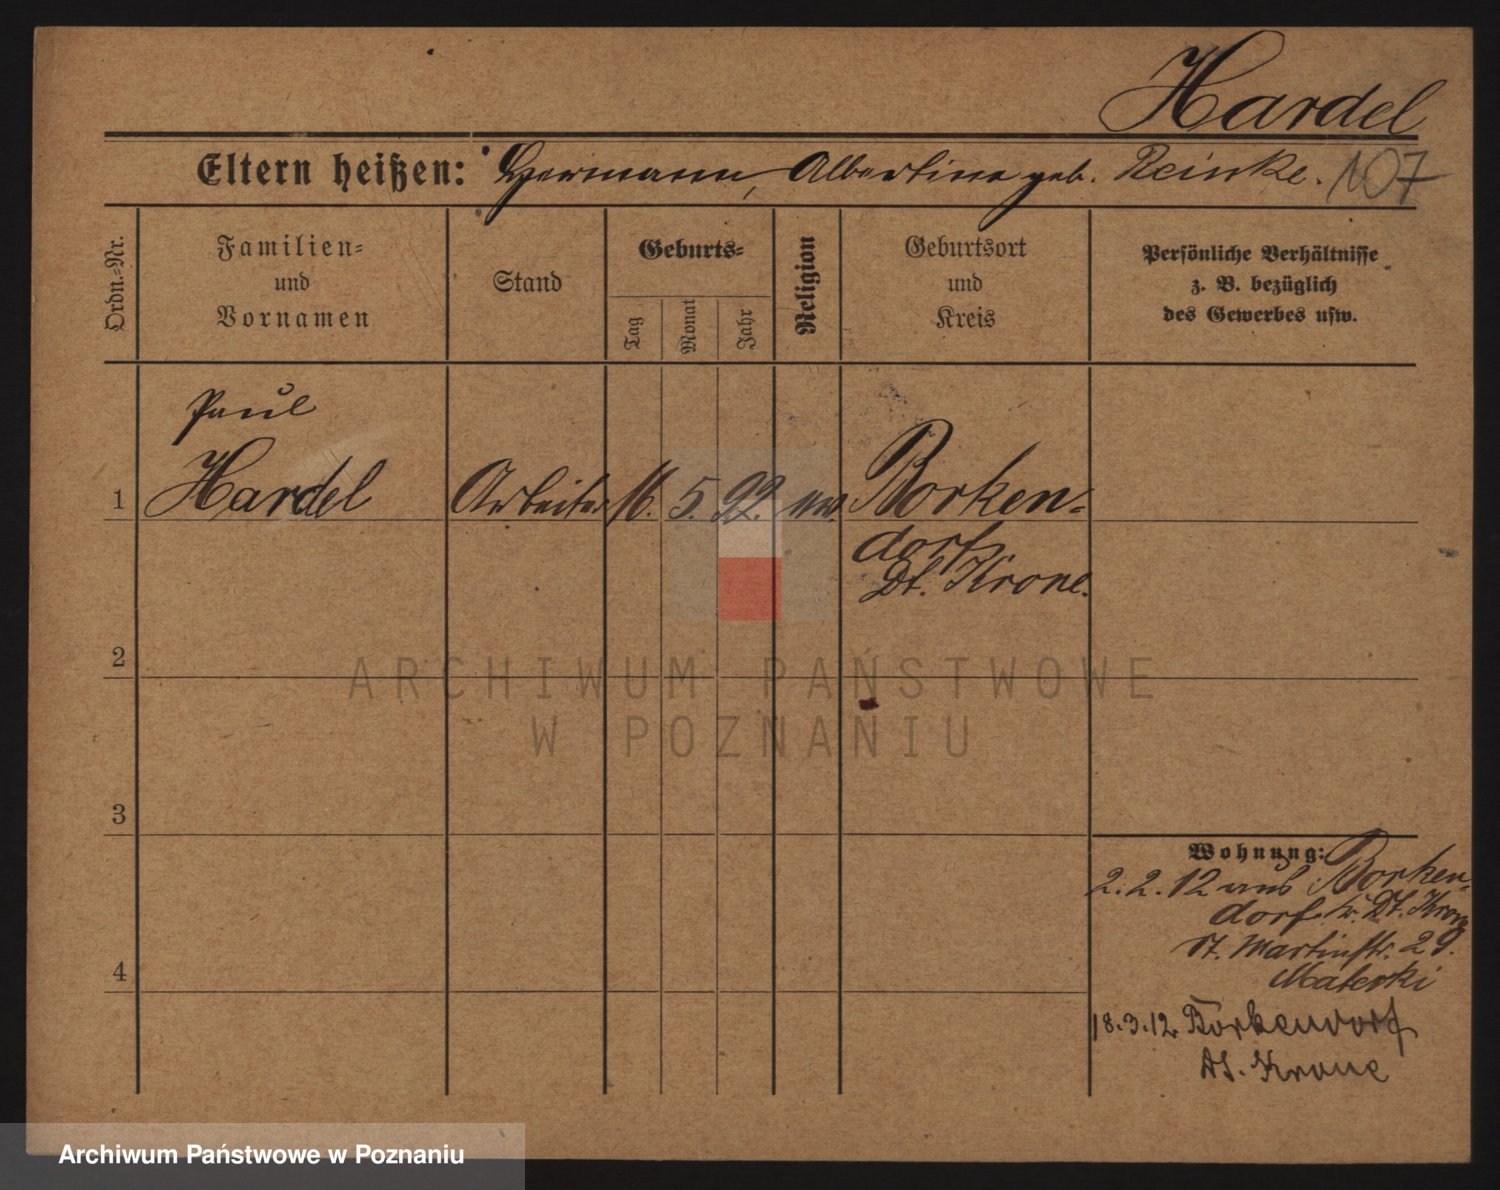 Hardel
Eltern heißen: Hermann, Albertine geb. Reinke. 107
Ordn.-Nr.
Familien-
und
Vornamen
Stand
Geburts-
Tag
Monat
Jahr
Religion
Geburtsort
und
Kreis
Persönliche Verhältnisse
z. B. bezüglich
des Gewerbes usw.
Paul
1 Hardel Arbeiter 16. 5. 92. Borken-
dorf
Dt. Krone.
2
3
4
Wohnung:
2.2.12 aus Borken-
dorf Kr. Dt. Krone
St. Martinstr. 29.
18.3.12 Borkendorf
Dt. Krone
ARCHIWUM PAŃSTWOWE
W POZNANIU
Archiwum Państwowe w Poznaniu